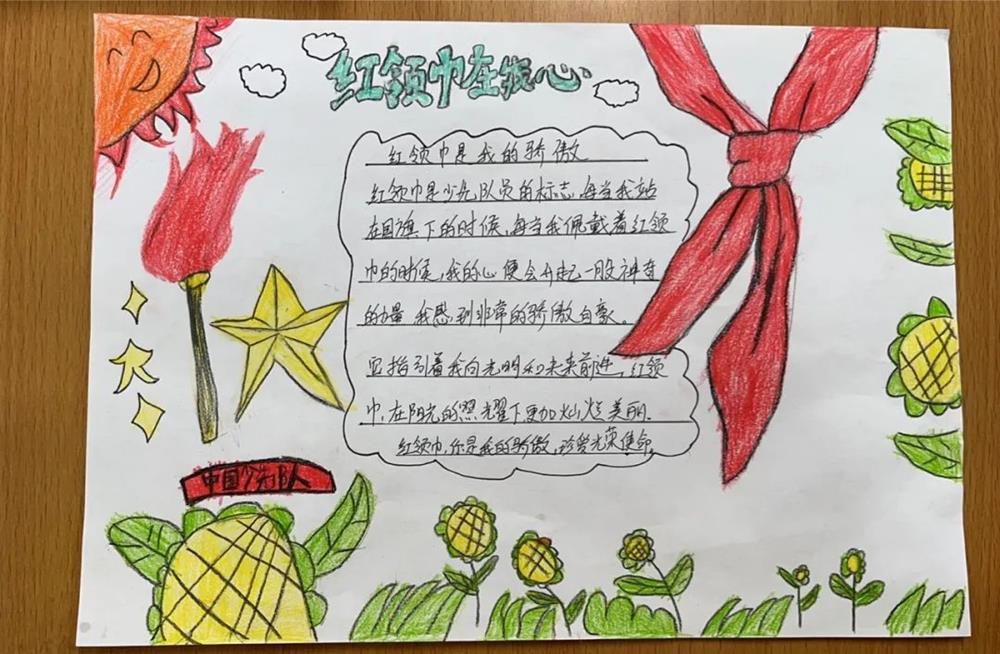 红领巾在我心
红领巾是我的骄傲
红领巾是少先队员的标志,每当我站
在国旗下的时候,每当我佩戴着红领
巾的时候,我的心便会升起一股神奇
的力量 我感到非常的骄傲自豪。
它指引着我向光明和未来前进,红领
巾,在阳光的照耀下更加灿烂美丽.
红领巾,你是我的骄傲,珍爱光荣使命。
中国少先队